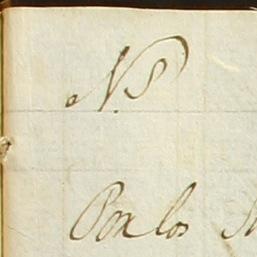 N.S
Por los